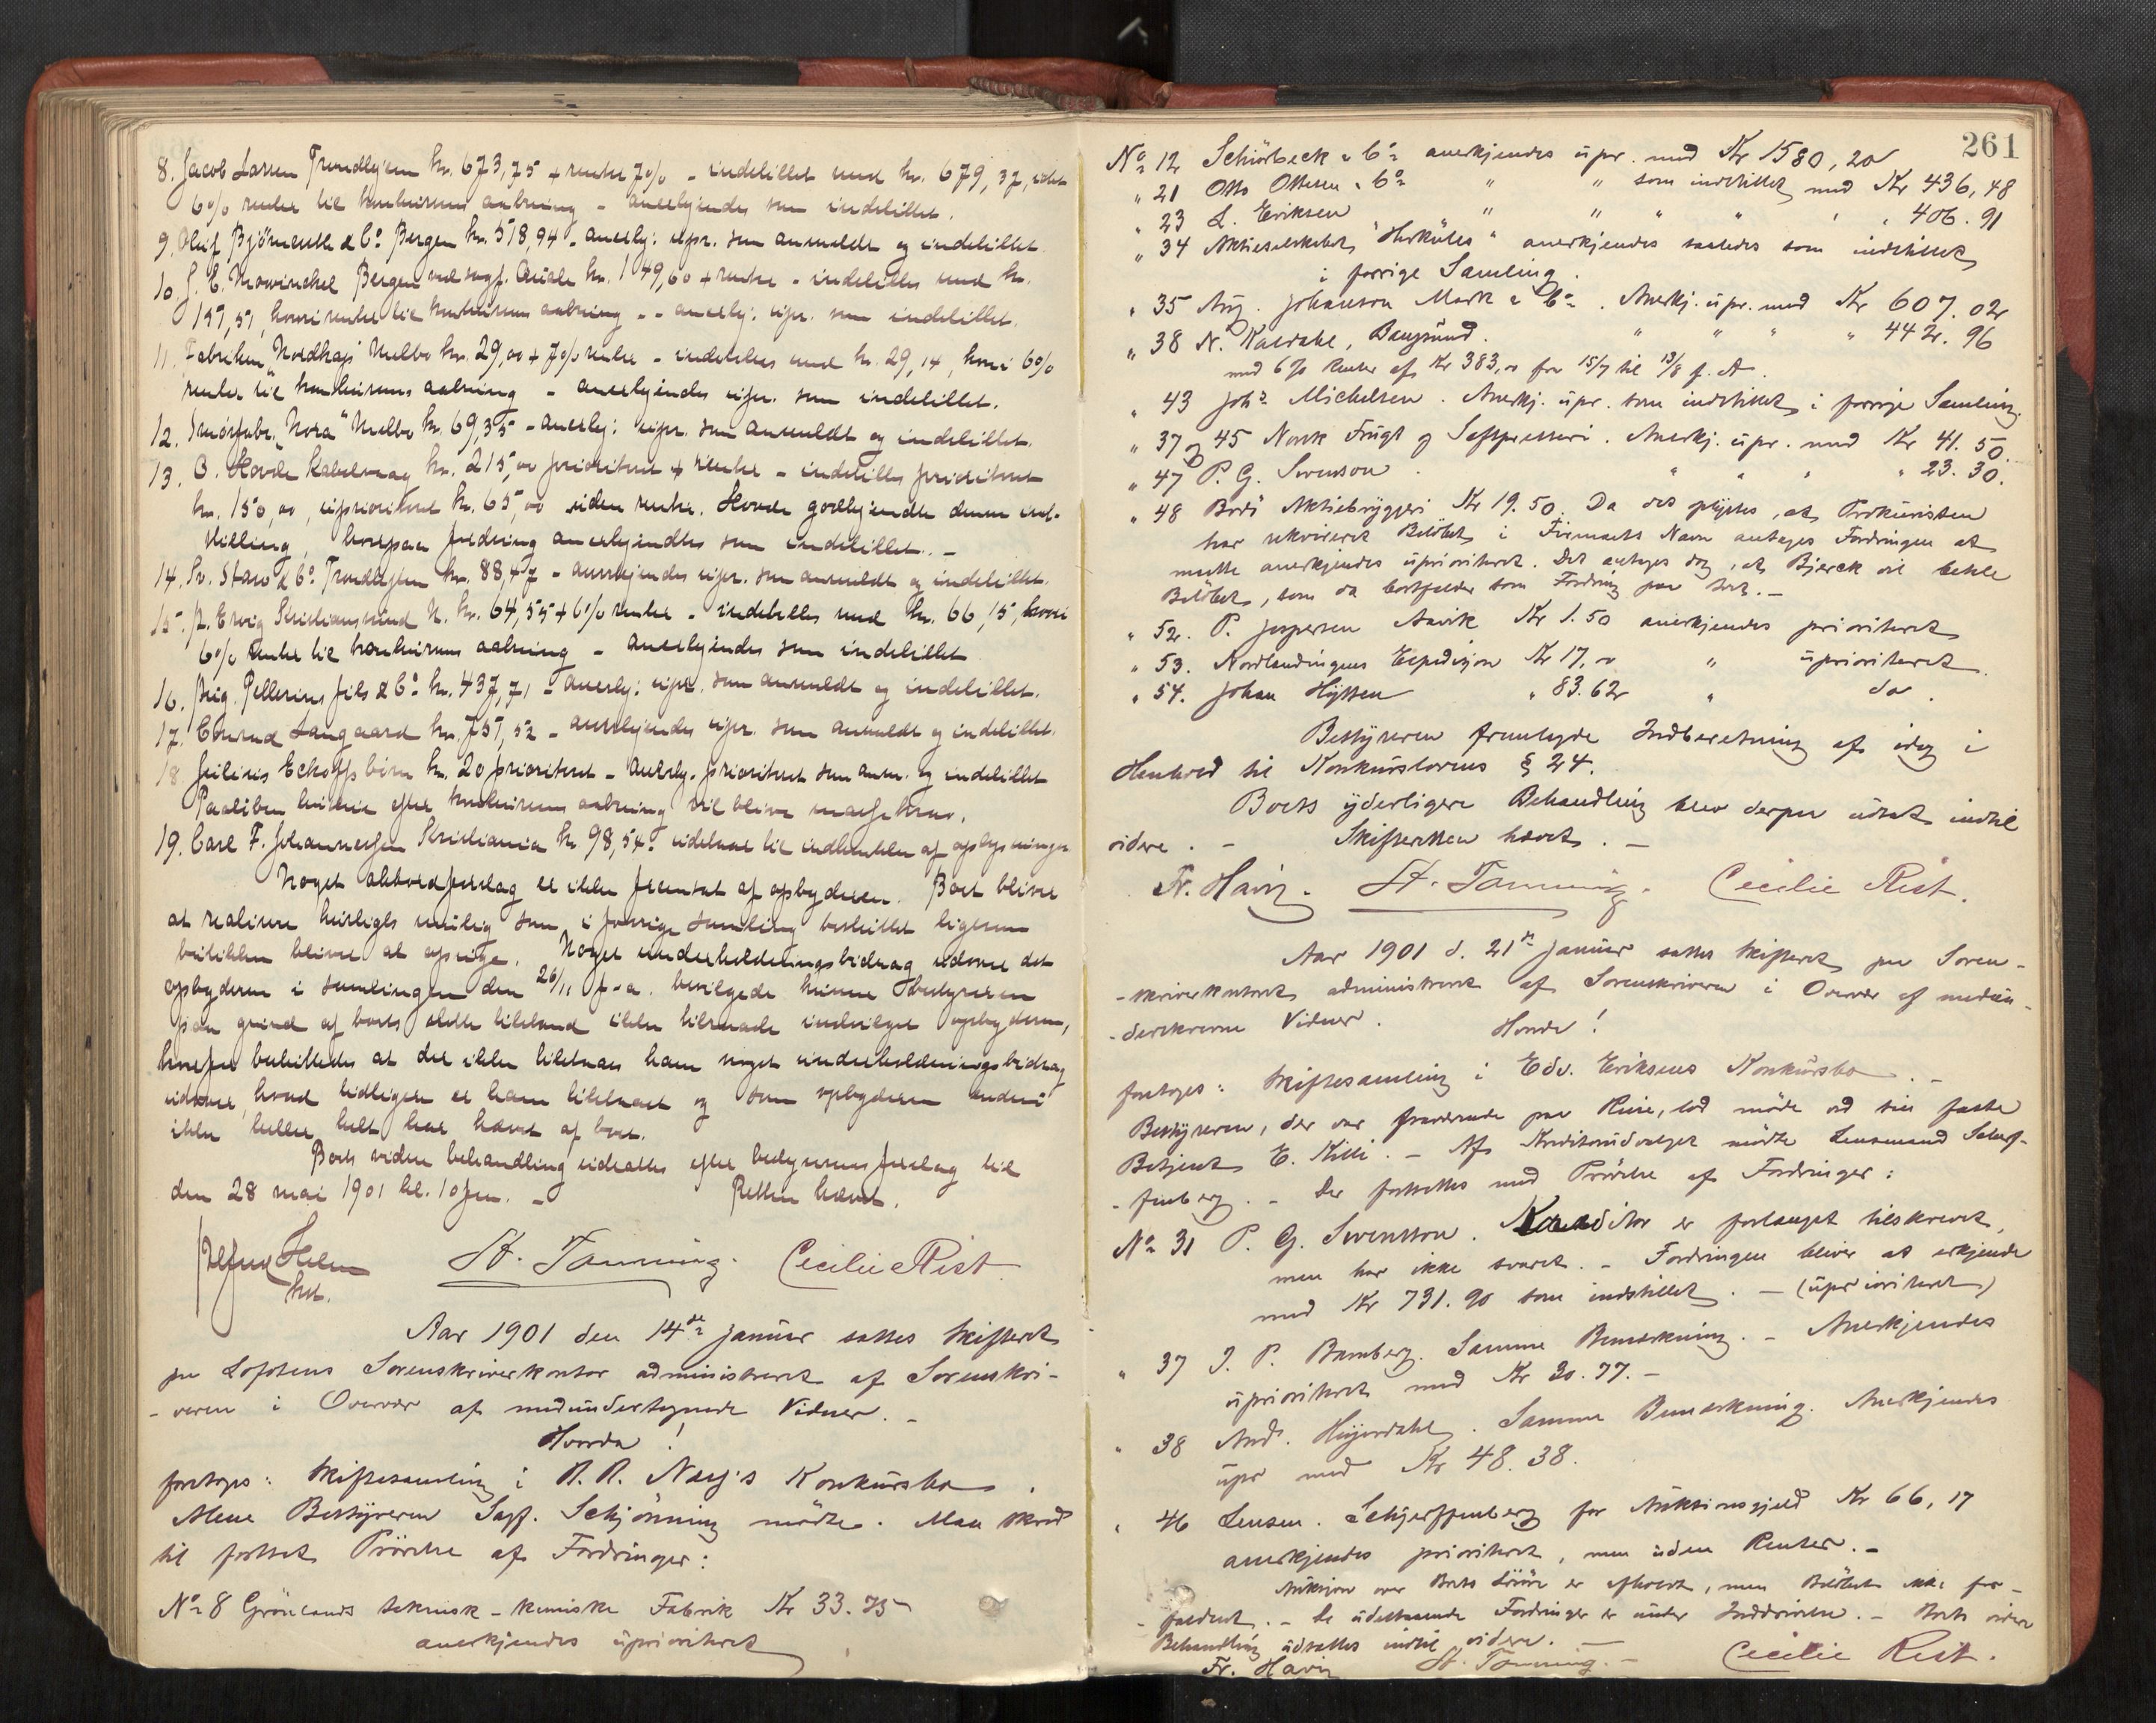 8. Jacob Larsen Trondhjem kr. 673,75 + renter 7% - indstillet med kr. 679,37, idet
6% renter til konkursens aabning - anerkjendes som indstillet.
9. Oluf Bjørneseth & Co Bergen kr. 518,94 - anerkj: upr. som anmeldt og indstillet.
10. J. E. Mowinckel Bergen ved sagf. kr. 149,60 + renter - indstilles med kr.
157,51, hvori renter til konkursens aabning - anerkj: upr. som indstillet.
11. Fabriken "Nordkap" Melbo kr. 29,00 + 7% renter - indstilles med kr. 29,14, hvori 6%
renter til konkursens aabning - anerkjendes upr. som indstillet.
12. Smørfabr. "Nora" Melbo kr. 69,35 - anerkj: upr. som anmeldt og indstillet.
13. O. Hovde Kabelvaag kr. 215,00 prioriteret + renter - indstilles prioriteret
kr. 150,00, uprioriteret kr. 65,00 uden renter. Hovde godkjendte denne ind-
stilling, hvorpaa fordring anerkjendtes som indstillet. -
14. Sv. Staw & Co Trondhjem kr. 88,47 - anerkjendes upr. som anmeldt og indstillet.
15. Kristianssund N. kr. 64,55 + 6% renter - indstilles med kr. 66,15, hvori
6% renter til konkursens aabning - anerkjendes som indstillet
16. Aug. Pellerins fils & Co kr. 437,71 - anerkj: upr. som anmeldt og indstillet.
17. Conrad Langaard kr. 757,52 - anerkjendes upr. som anmeldt og indstillet.
18 Julius Eckoffs kr. 20 prioriteret - anerkj. prioriteret som anm. og indstillet
Paaløben husleie efter konkursens aabning vil blive massekrav.
19. Carl F. Johannessen Kristiania kr 98,54. udstaar til indhentelse af oplysninger
Noget akkordforslag er ikke fremsat af opbyderen. Boet bliver
at realisere hurtigst mulig som i forrige samling besluttet ligesom
butikken bliver at opsige. Noget underholdningsbidrag udover det
opbyderen i samlingen den 26/11 f.a. bevilgede kunne bestyreren
paa grund af boets slette tilstand ikke tilraade indvilget opbyderen,
hvorfor besluttedes at der ikke tilstaaes ham noget underholdningsbidrag
udover, hvad tidligere er ham tilstaaet og som opbyderen endnu
ikke heller helt har hævet af boet.
Boets videre behandling udsattes efter bestyrerens forslag til
den 28 mai 1901 kl. 10 fm. - Retten hævet.
St. Tomming. Cecilie Rist
kst.
Aar 1901 den 14de januar sattes skifteret
paa Lofotens Sorenskriverkontor administreret af Sorenskri-
-veren i Overvær af medundertegnede Vidner. -
Hvorda!
foretoges: skiftesamling i R. R. Konkursbo.
Alene Bestyreren Sagf. Schjønning mødte. Man skred
til fortsat Prøvelse af Fordringer:
No 8 Grönlands teknisk-kemiske Fabrik Kr 33.75
anerkjendes uprioriteret
261
No 12 Schiørbeck & Co anerkjendes upr. med Kr 1580,20
" 21 Otto Ottesen & Co " " som indstillet med Kr 436,48
" 23 L. Eriksen " " " " " " 406.91
" 34 Aktieselskabet "Herkules" anerkjendes saaledes som indstillet
i forrige Samling.
" 35 Aug. Johanson Mark & Co. Anerkj. upr. med Kr 607.02
" 38 N. Kaldahl, " " " " 442.96
med 6% Renter af Kr 383,00 fra 15/7 til 13/8 f. A.
" 43 Johs Michelsen. Anerkj. upr. som indstillet i forrige Samling.
" 37 og 45 Norsk Frugt og Saftpresseri. Anerkj. upr. med Kr 41.50.
" 47 P. G. Svenson. " " " " 23.30.
" 48 Bodö Aktiebryggeri Kr 19.50. Da det oplystes, at Prokuristen
har rekvireret Beløbet i Firmaets Navn antoges Fordringen at
maatte anerkjendes uprioriteret. Det antoges dog, at Bjerck vil betale
Beløbet, som da bortfalder som Fordring paa Boet. -
" 52. P. Jespersen Kr 1.50 anerkjendes prioriteret
" 53. Nordlendingens Expedisjon Kr 17,00 " uprioriteret
" 54. Johan " 83.62 " do.
Bestyreren fremlagde Indberetning af idag i
Henhold til Konkurslovens § 24.
Boets yderligere Behandling blev derpaa udsat indtil
videre. - Skifteretten hævet. -
Fr. St. Tomming. Cecilie Rist.
Aar 1901 d. 21de januar sattes skifteret paa Soren-
-skriverkontoret administreret af Sorenskriveren i Overvær af medun-
-derskrevne Vidner. Hvorda!
foretoges: skiftesamling i Edv. Eriksens Konkursbo. -
Bestyreren, der var fraværende paa Reise, lod møde ved sin faste
Betjent E. Killi. - Af Kreditorudvalget mødte Lensmand Scherf-
-fenberg. - Der fortsattes med Prøvelse af Fordringer:
No 31 P. G. Svensson. Kreditor er forlangst tilskrevet,
men har ikke svaret. - Fordringen bliver at erkjende
med Kr 731.90 som indstillet. - (uprioriteret)
" 37 J. P. Bamberg. Samme Bemærkning. - Anerkjendes
uprioriteret med Kr 30.77. -
" 38 And. Samme Bemærkning. Anerkjendes
upr med Kr 48.38.
" 46 Lensm. Schjerffenberg for Auktionsgjæld Kr 66,17
anerkjendes prioriteret, men uden Renter. -
Auktion over Boets Løsøre er afholdt, men Beløbet ikke for-
-faldent. - De udestaaende Fordringer er under Inddrivelse. - Boets videre
Behandling udsattes indtil videre. -
Fr. St. Tomming. - Cecilie Rist.